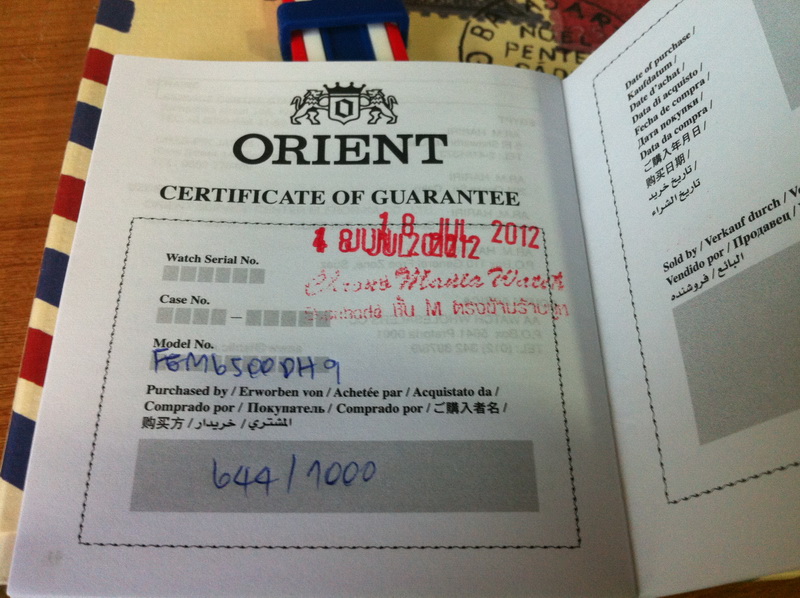 ORIENT
CERTIFICATE OF GUARANTEE
18 JUL 2012
Watch Serial No.
Case No.
ชั้น M ตรงข้ามร้านภูฟ้า
Model No.
FEM6500DH9
Purchased by / Erworben von / Achetée par / Acquistato da /
Comprado por / Покупатель / Comprado por / ご購入者名 /
购买方 / خریدار / المشتري
644/1000
Date of purchase /
Kaufdatum /
Date d'achat /
Data di acquisto /
Fecha de compra /
Дата покупки /
Data da compra /
ご購入年月日 /
购买日期 /
تاریخ خرید /
تاريخ الشراء
Sold by / Verkauf durch /
Vendido por / Продавец /
البائع / فروشنده
NOËL
PENTE